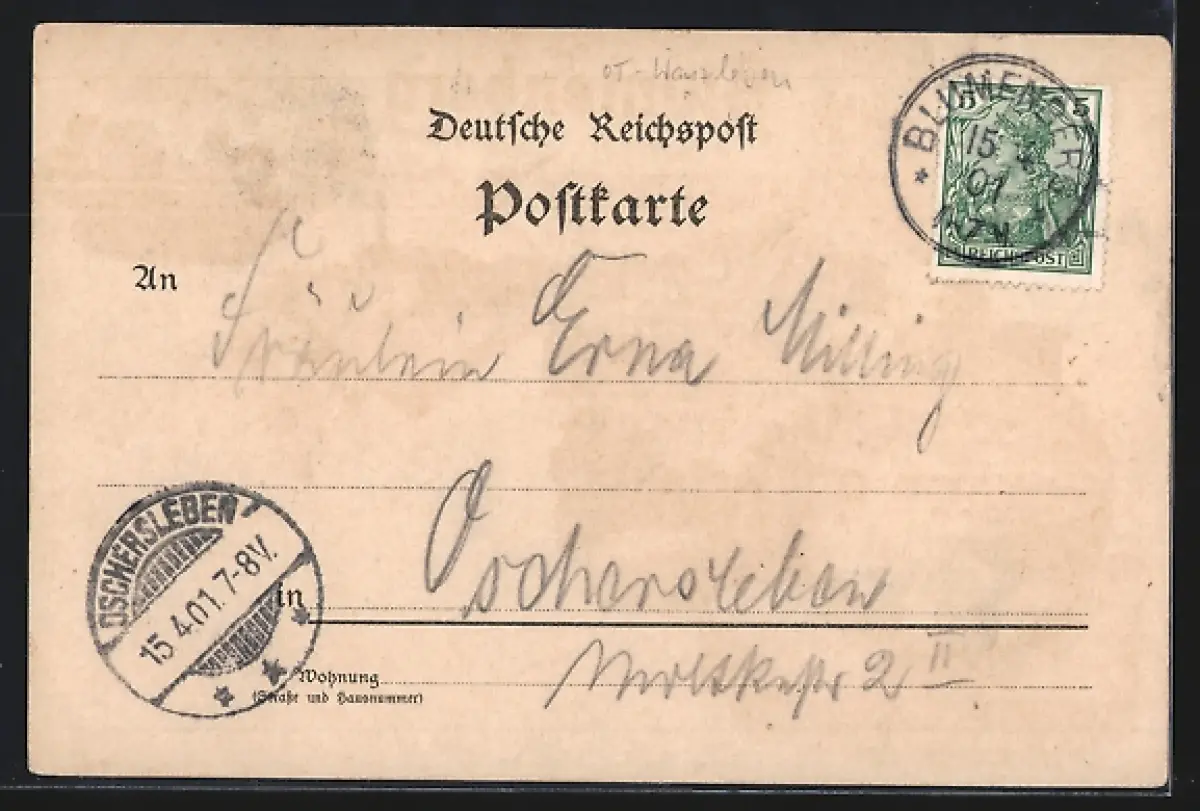 OT-Wanzleben
Deutsche Reichspost
Postkarte
BLUMENBER
15
01
5
REICHSPOST
An
Fräulein Erna Milling
OSCHERSLEBEN
15.4.01.7-8V.
in Oschersleben
Wohnung Moltkestr 2 II
(Straße und Hausnummer)